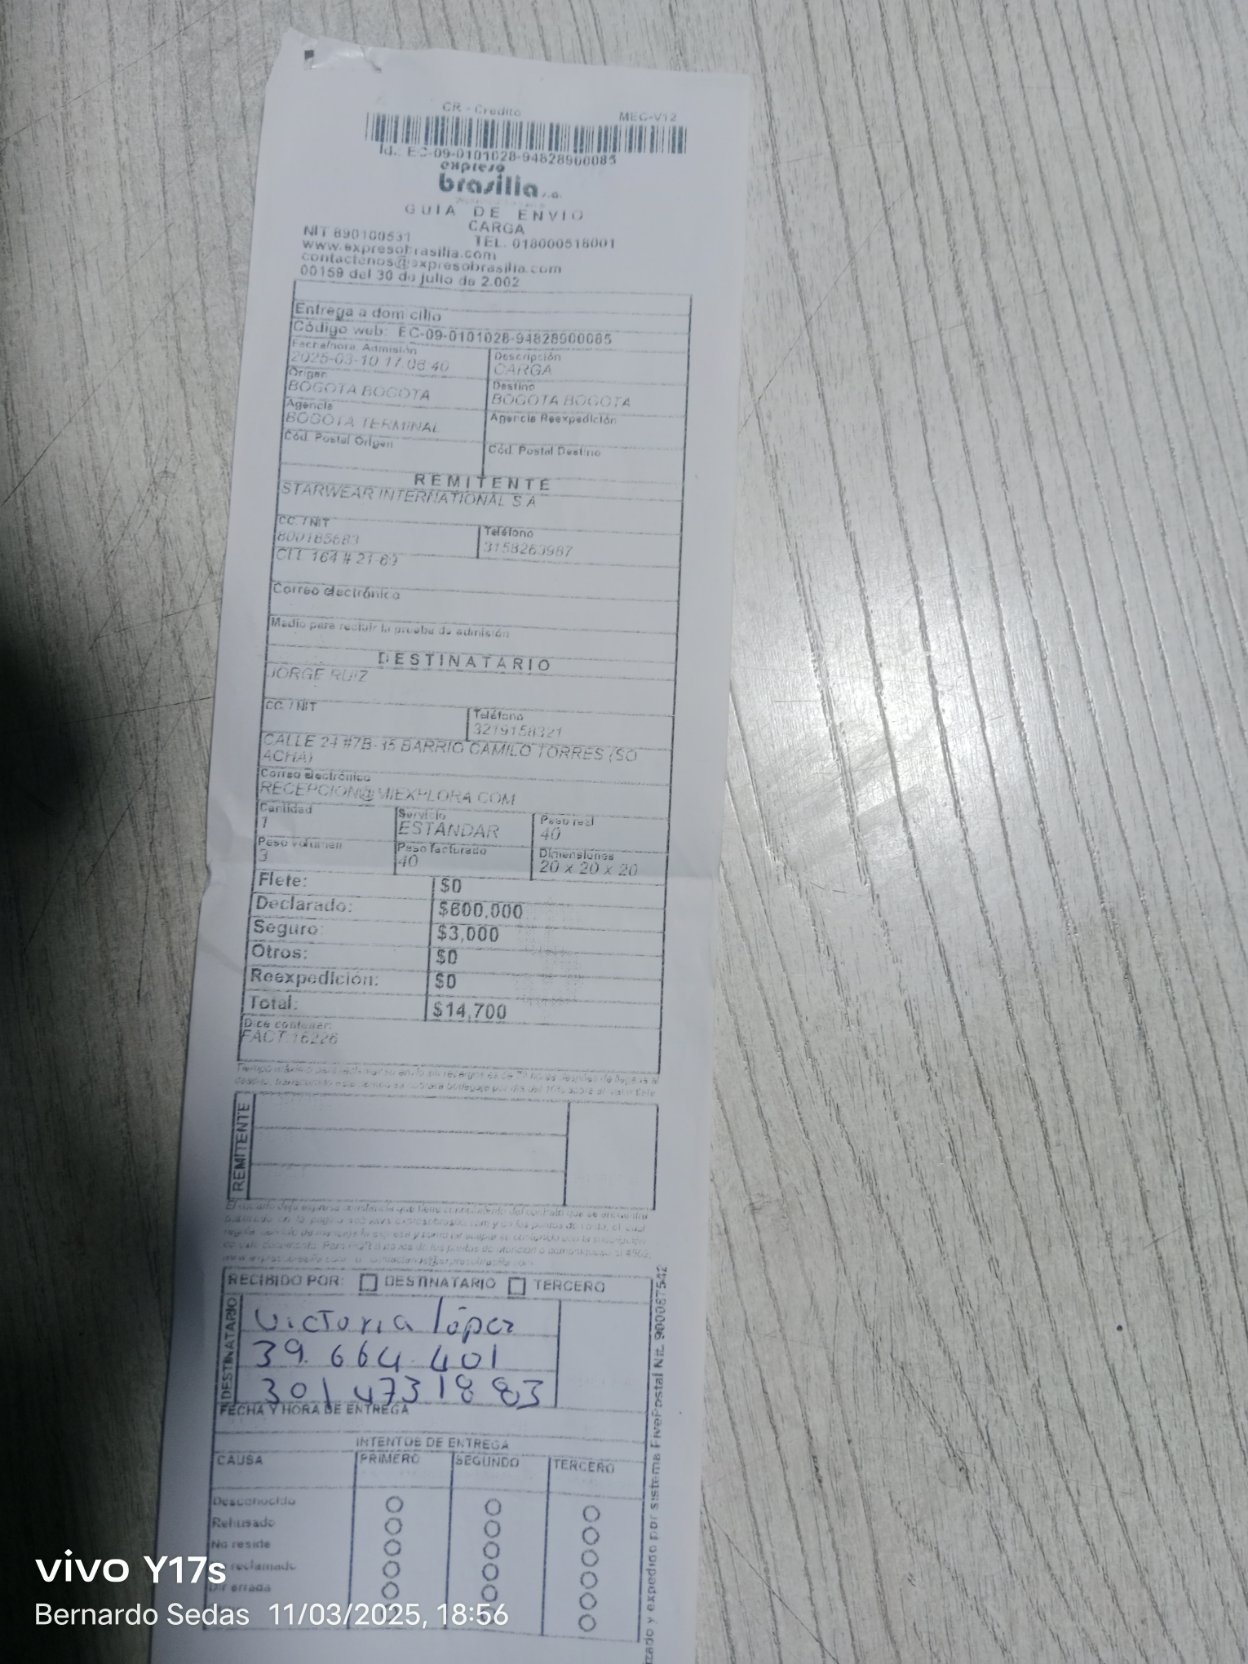 CR - Credito MEC-V12
Id.: EC-09-0101028-94828900085
expreso
brasilia s.a.
GUIA DE ENVIO
CARGA
NIT 890100531 TEL. 018000518001
www.expresobrasilia.com
contactenos@expresobrasilia.com
00159 del 30 de julio de 2.002
Entrega a domicilio
Código web: EC-09-0101028-94828900085
Fecha/hora Admisión Descripción
2025-03-10 17:08:40 CARGA
Origen Destino
BOGOTA BOGOTA BOGOTA BOGOTA
Agencia Agencia Reexpedición
BOGOTA TERMINAL
Cód. Postal Origen Cód. Postal Destino
REMITENTE
STARWEAR INTERNATIONAL S A
CC. / NIT Teléfono
800185683 3158263987
CLL 164 # 21 69
Correo electrónico
Medio para recibir la prueba de admisión
DESTINATARIO
JORGE RUIZ
CC. / NIT Teléfono
3219158321
CALLE 24 #7B-35 BARRIO CAMILO TORRES (SO
ACHA)
Correo electrónico
RECEPCION@MIEXPLORA.COM
Cantidad Servicio Peso real
1 ESTANDAR 40
Peso volumen Peso facturado Dimensiones
3 40 20 x 20 x 20
Flete: $0
Declarado: $600,000
Seguro: $3,000
Otros: $0
Reexpedición: $0
Total: $14,700
Dice contener:
FACT:16226
REMITENTE
RECIBIDO POR: DESTINATARIO TERCERO
DESTINATARIO
Victoria lópez
39.664.401
3014731883
FECHA Y HORA DE ENTREGA
INTENTOS DE ENTREGA
CAUSA PRIMERO SEGUNDO TERCERO
Desconocido
Rehusado
No reside
reclamado
Dir errada
expedido por sistema FivePostal Nit. 900087542
vivo Y17s
Bernardo Sedas 11/03/2025, 18:56